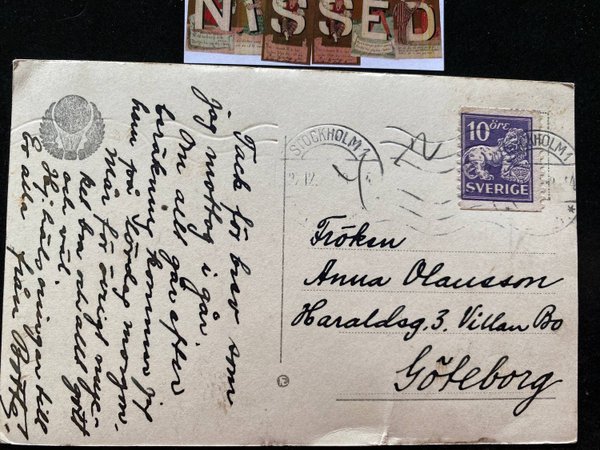 NISSED
Tack för brev som
jag mottog i går.
Om allt går efter
beräkning kommer jag
hem på lördag morgon.
Mår för övrigt myc-
ket bra och allt gott
och väl.
Hjärtl. hälsningar till
Er alla
från
STOCKHOLM 1
10 ÖRE
SVERIGE
STOCKHOLM 1
Fröken
Anna Olausson
Haraldsg. 3. Villan Bo
Göteborg